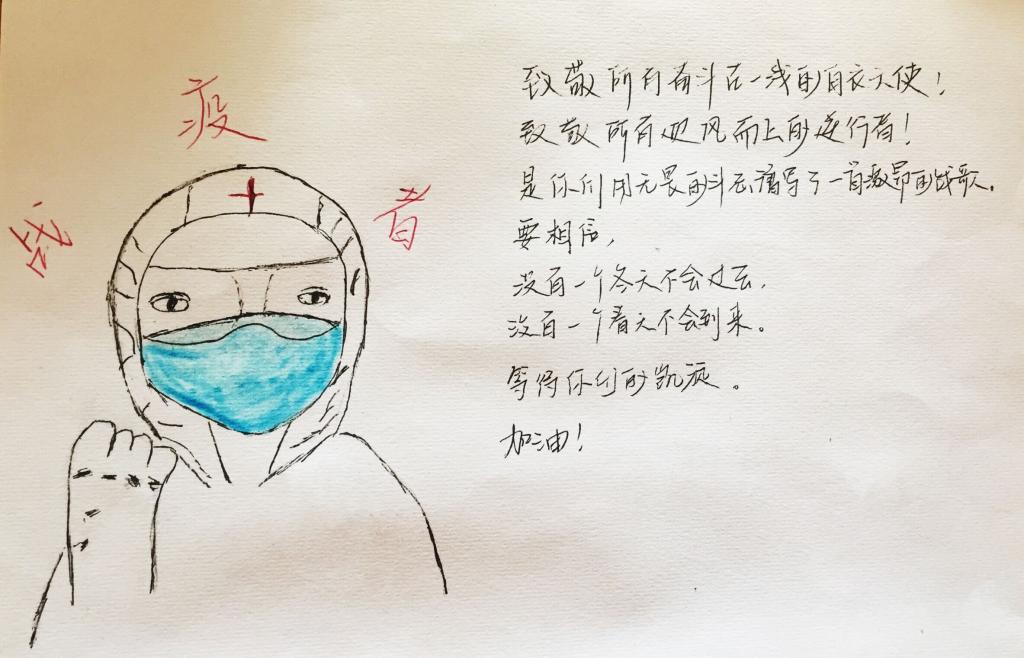 战疫者
致敬所有奋斗在一线的白衣天使！
致敬所有迎风而上的逆行者！
是你们用无畏的斗志谱写了一首激昂的战歌。
要相信，
没有一个冬天不会过去，
没有一个春天不会到来。
等待你们的凯旋。
加油！